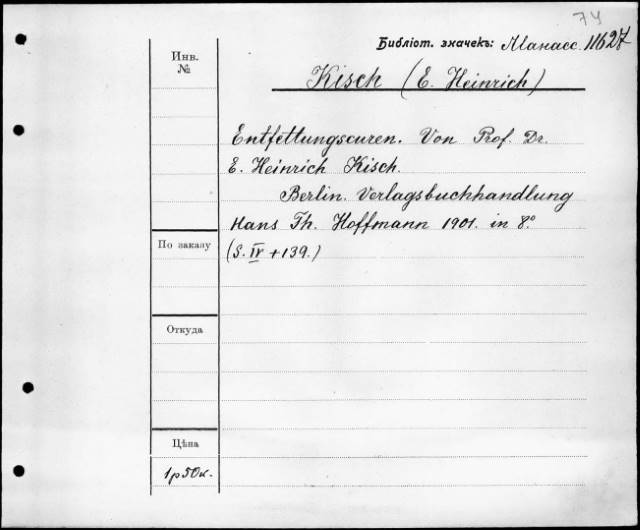 74
Библіот. значекъ: Манасс. 11627
Инв.
№
Kisch (E. Heinrich)
Entfettungscuren. Von Prof. Dr.
E. Heinrich Kisch.
Berlin. Verlagsbuchhandlung
Hans Th. Hoffmann 1901. in 8°
(S. IV + 139.)
По заказу
Откуда
Цѣна
1 р 50 к.